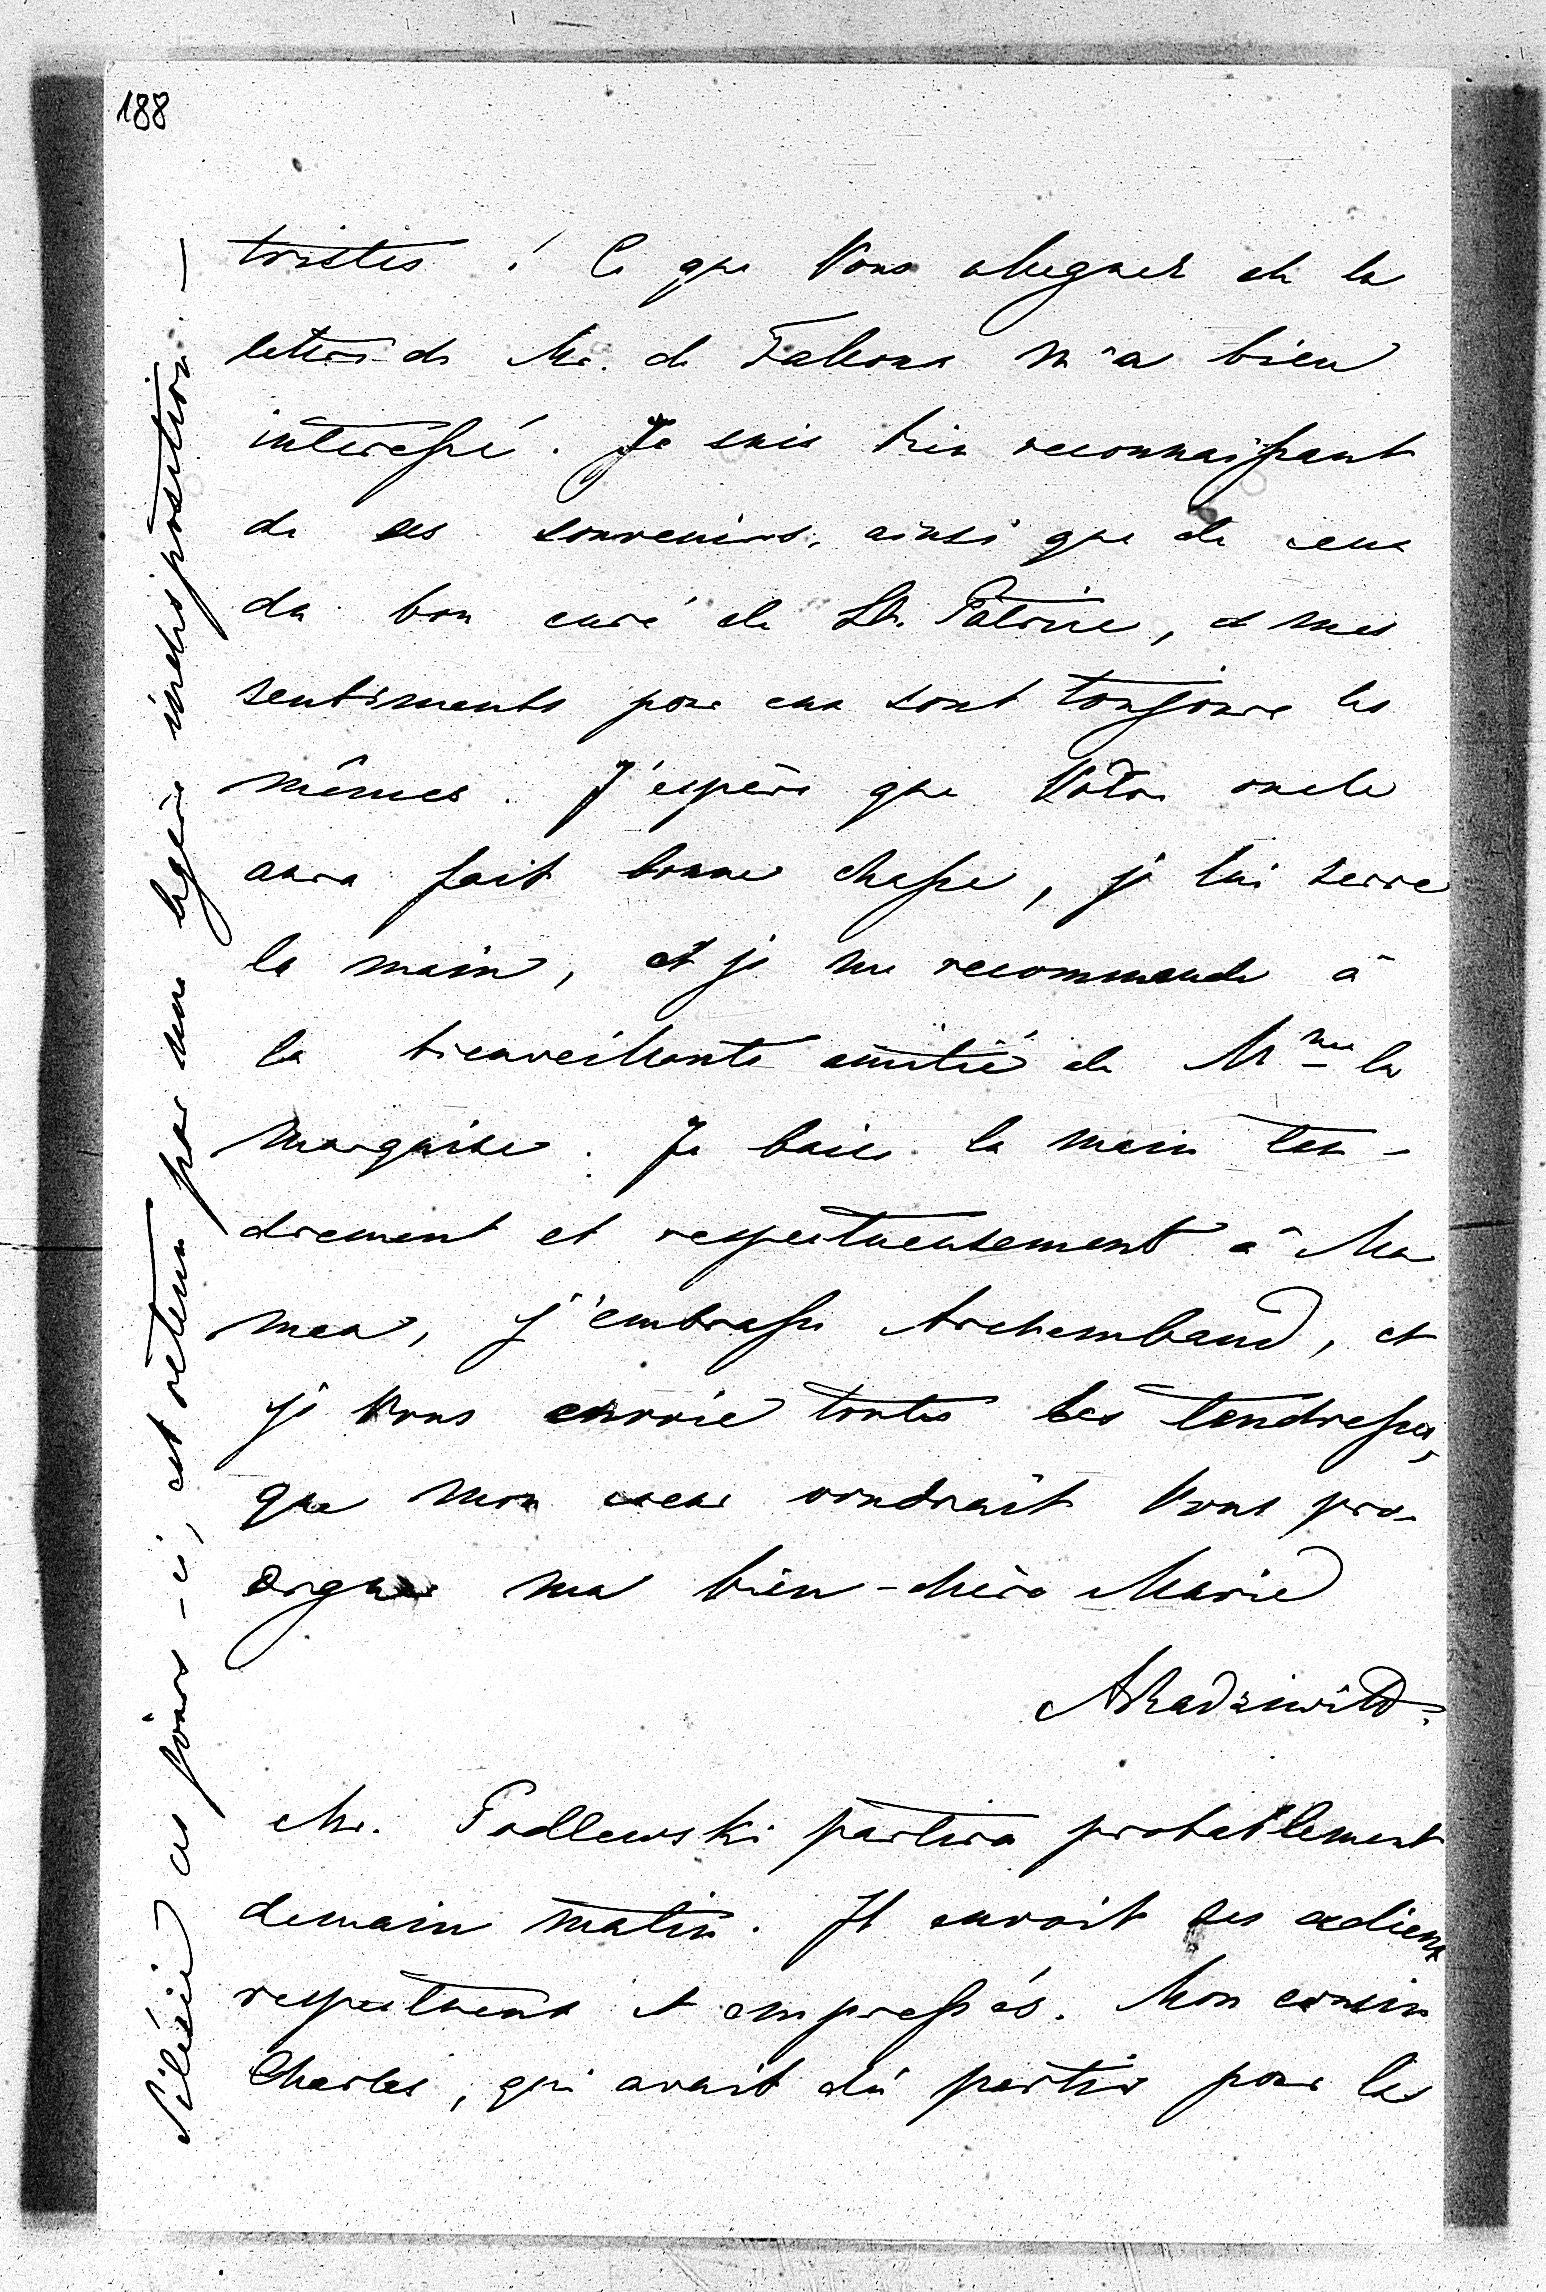 188
tristes ! Ce que Vous alleguez de la
lettre de Mr. de Falloux m'a bien
interessé. Je suis bien reconnaissant
de ses souvenirs, ainsi que de ceux
du bon curé de St. Patrice, et mes
sentiments pour eux sont toujours les
mêmes. J'espère que Votre oncle
aura fait bonne chasse, je lui serre
la main, et je me recommande à
la bienveillante amitié de Mme la
marquise. Je baise la main ten-
drement et respectueusement à Ma
man, j'embrasse Archambaud, et
je Vous envoie toutes les tendresses,
que mon coeur voudrait Vous pro-
diguer ma bien-chère Marie
ARadziwill.
Mr. Podlewski partira probablement
demain matin. Il envoit ses adieux
respectueux et empressés. Mon cousin
Charles, qui avait dû partir pour la
Silésie ces jours-ci, est retenu par une légère indisposition. —